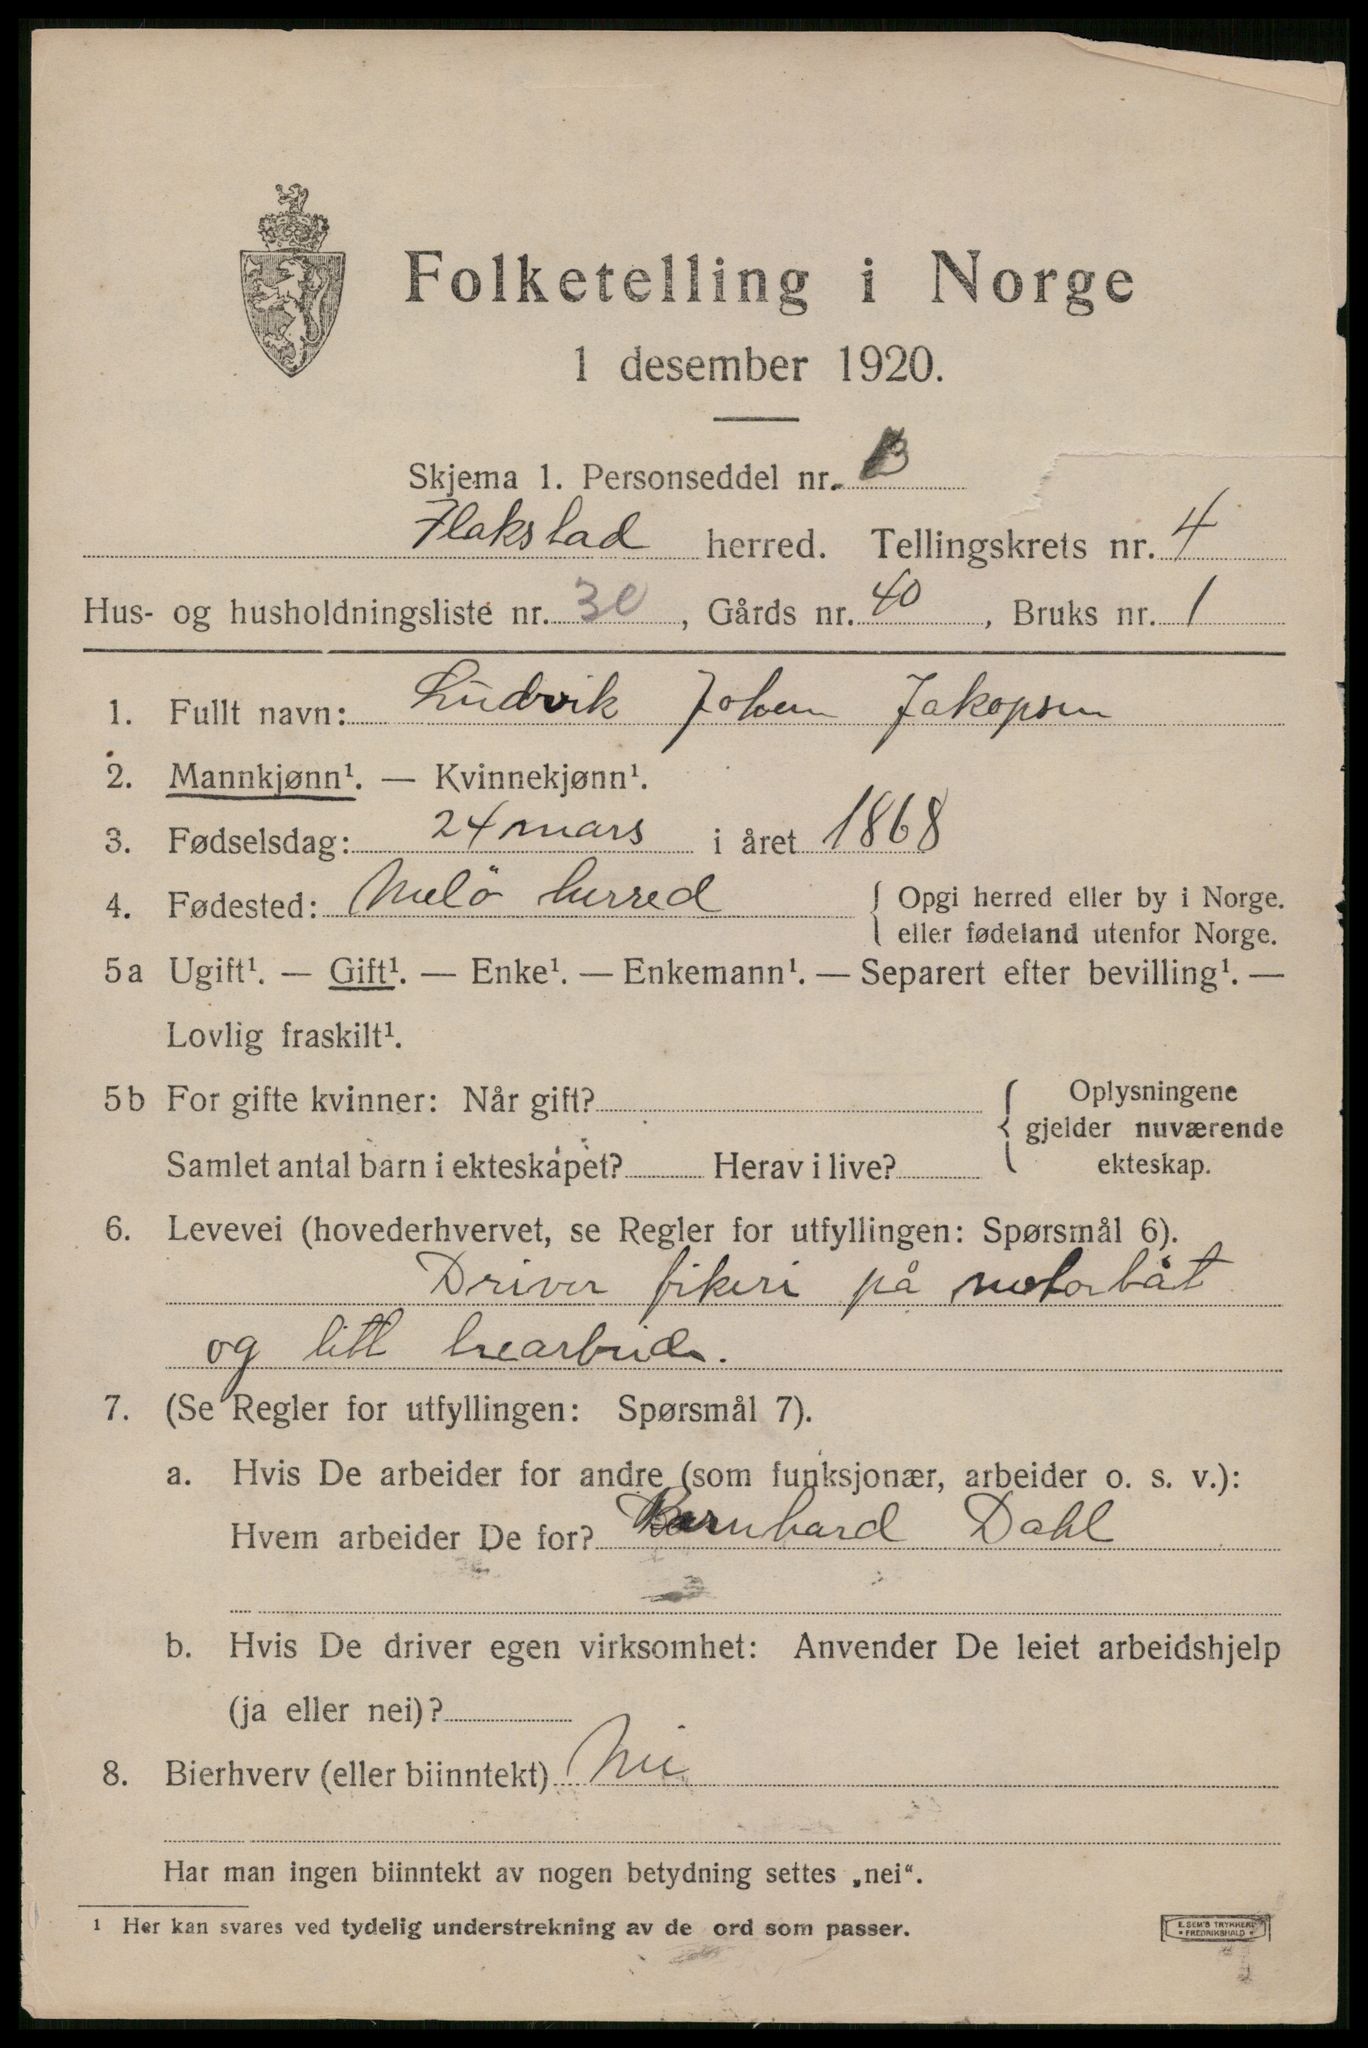 Folketelling i Norge
1 desember 1920.
Skjema 1. Personseddel nr. B
Flakstad herred. Tellingskrets nr. 4
Hus- og husholdningsliste nr. 30, Gårds nr. 40, Bruks nr. 1
1. Fullt navn: Ludvik Johan Jakopsen
2. Mannkjønn¹. — Kvinnekjønn¹.
3. Fødselsdag: 24 mars i året 1868
4. Fødested: Melö herred { Opgi herred eller by i Norge.
eller fødeland utenfor Norge.
5a Ugift¹. — Gift¹. — Enke¹. — Enkemann¹. — Separert efter bevilling¹. —
Lovlig fraskilt¹.
5b For gifte kvinner: Når gift? { Oplysningene
gjelder nuværende
Samlet antal barn i ekteskapet? Herav i live? ekteskap.
6. Levevei (hovederhvervet, se Regler for utfyllingen: Spørsmål 6).
Driver fikeri på motorbåt
og litt
7. (Se Regler for utfyllingen: Spørsmål 7).
a. Hvis De arbeider for andre (som funksjonær, arbeider o. s. v.):
Hvem arbeider De for? Bernhard Dahl
b. Hvis De driver egen virksomhet: Anvender De leiet arbeidshjelp
(ja eller nei)?
8. Bierhverv (eller biinntekt) Nei
Har man ingen biinntekt av nogen betydning settes „nei“.
¹ Her kan svares ved tydelig understrekning av de ord som passer.
E. SEM'S TRYKKERI
• FREDRIKSHALD •